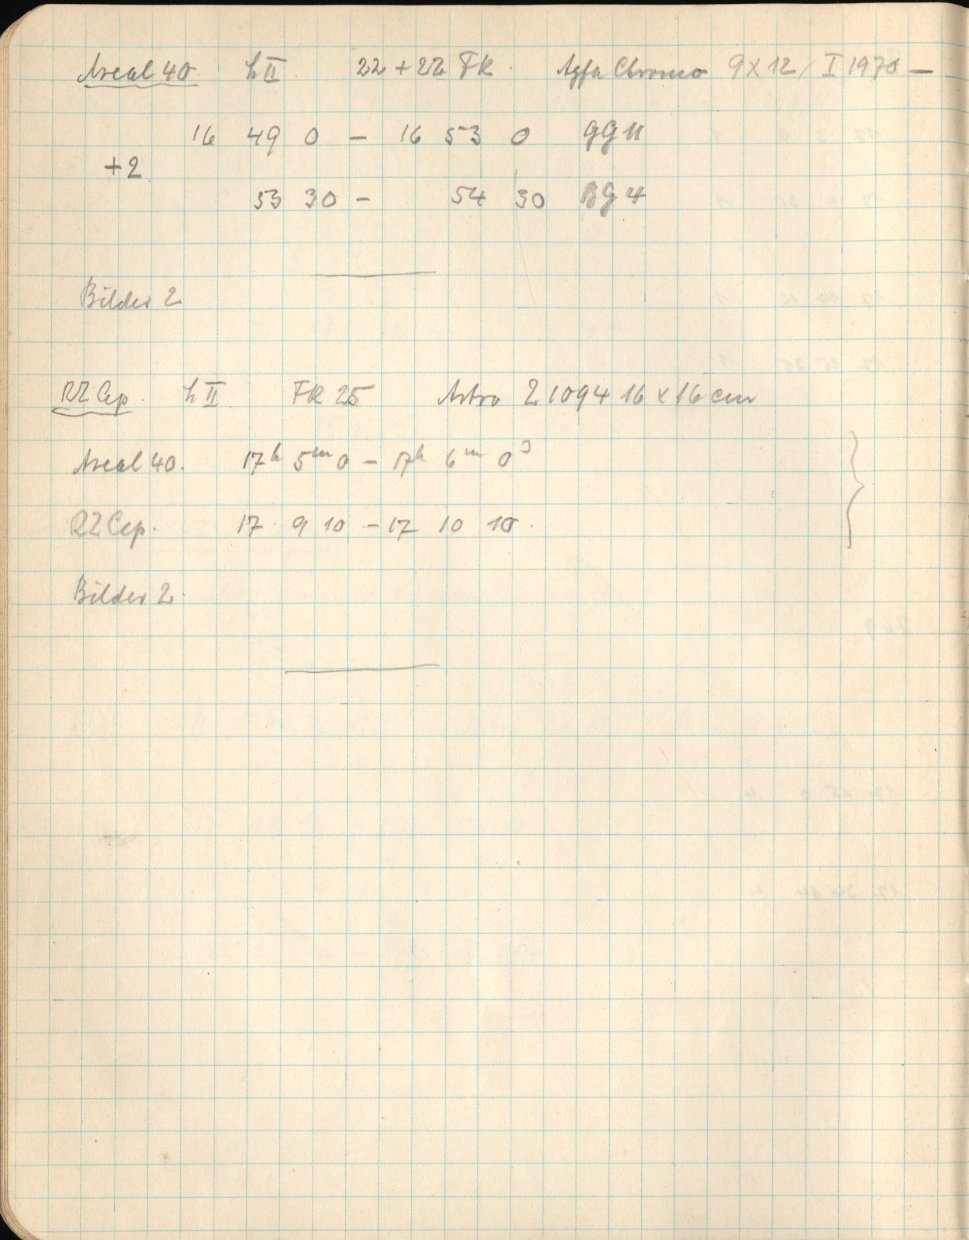 Areal 40. h II 22 + 22 FR. Agfa Chromo 9 x 12, I 1970 —
16 49 0 – 16 53 0 GG 11
+2
53 30 – 54 30 BG 4
Bilder 2
RZ Cep. h II FR 25 Astro Z 1094 16 x 16 cm
Areal 40. 17h 5m 0 – 17h 6m 0s
RZ Cep. 17 9 10 – 17 10 10.
Bilder 2.